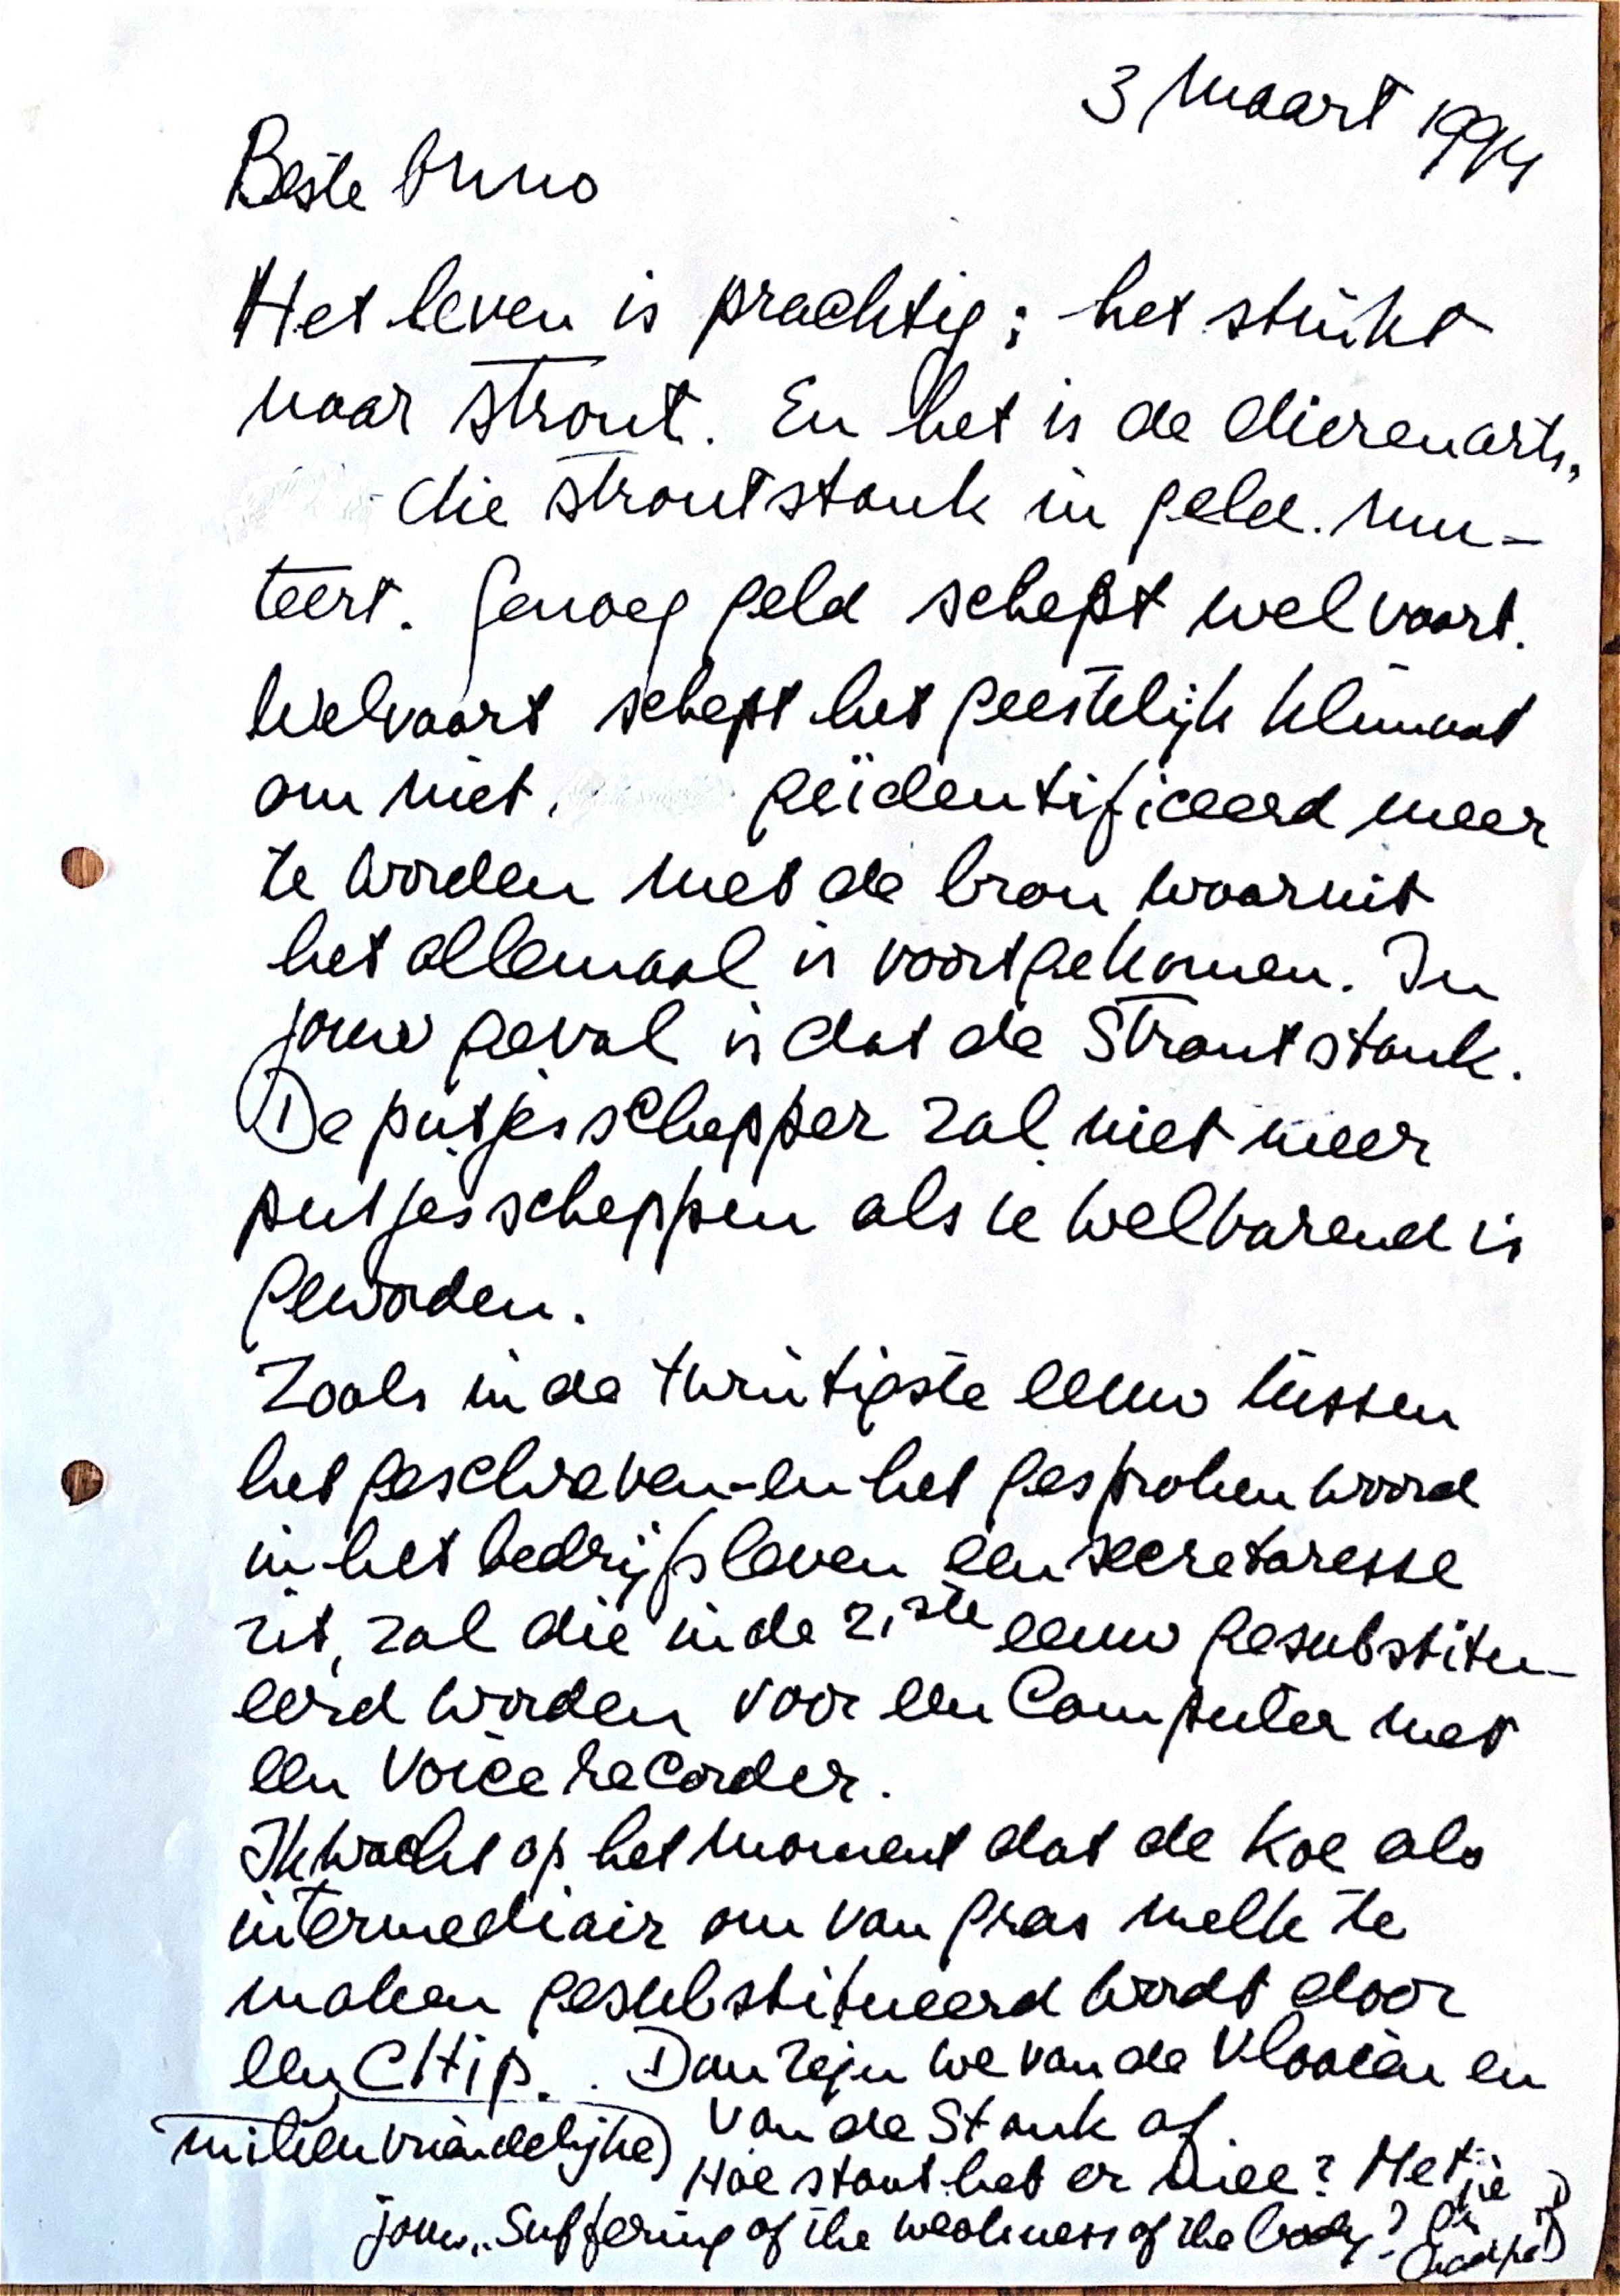 3 Maart 1994
Beste Onno
Het leven is prachtig; het stinkt
naar stront. En het is de dierenarts,
die strontstank in geld mu-
teert. Genoeg geld schept welvaart.
Welvaart schept het geestelijk klimaat
om niet geïdentificeerd meer
te worden met de bron waaruit
het allemaal is voortgekomen. In
jouw geval is dat de Strontstank.
De putjesschepper zal niet meer
putjesscheppen als ie welvarend is
geworden.
Zoals in de twintigste eeuw tussen
het geschreven- en het gesproken woord
in het bedrijfsleven een secretaresse
zit, zal die in de 21ste eeuw gesubstitu-
eerd worden voor een Computer met
een Voice recorder.
Ik wacht op het moment dat de Koe als
intermediair om van gras melk te
maken gesubstitueerd wordt door
een CHip. Dan zijn we van de Vlaaien en
milieuvriendelijke) van de Stank af.
Hoe staat het er mee? Met je
jouw „Suffering of the weakness of the body?